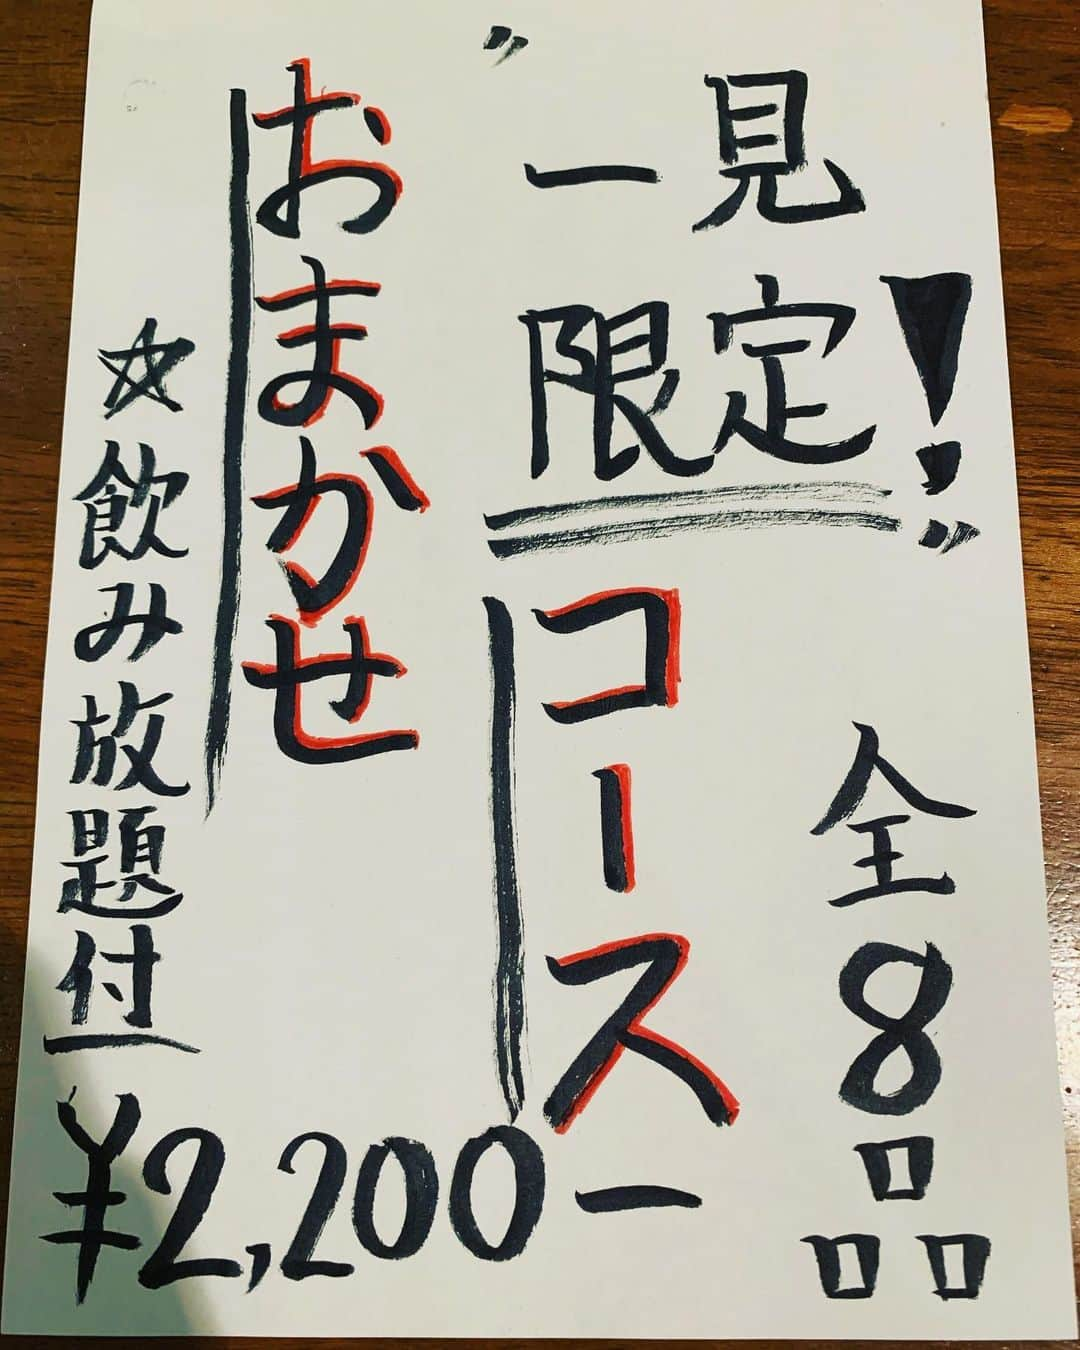 "一見
限定!"
おまかせ
コース
全8品
☆飲み放題付
¥2,200ー